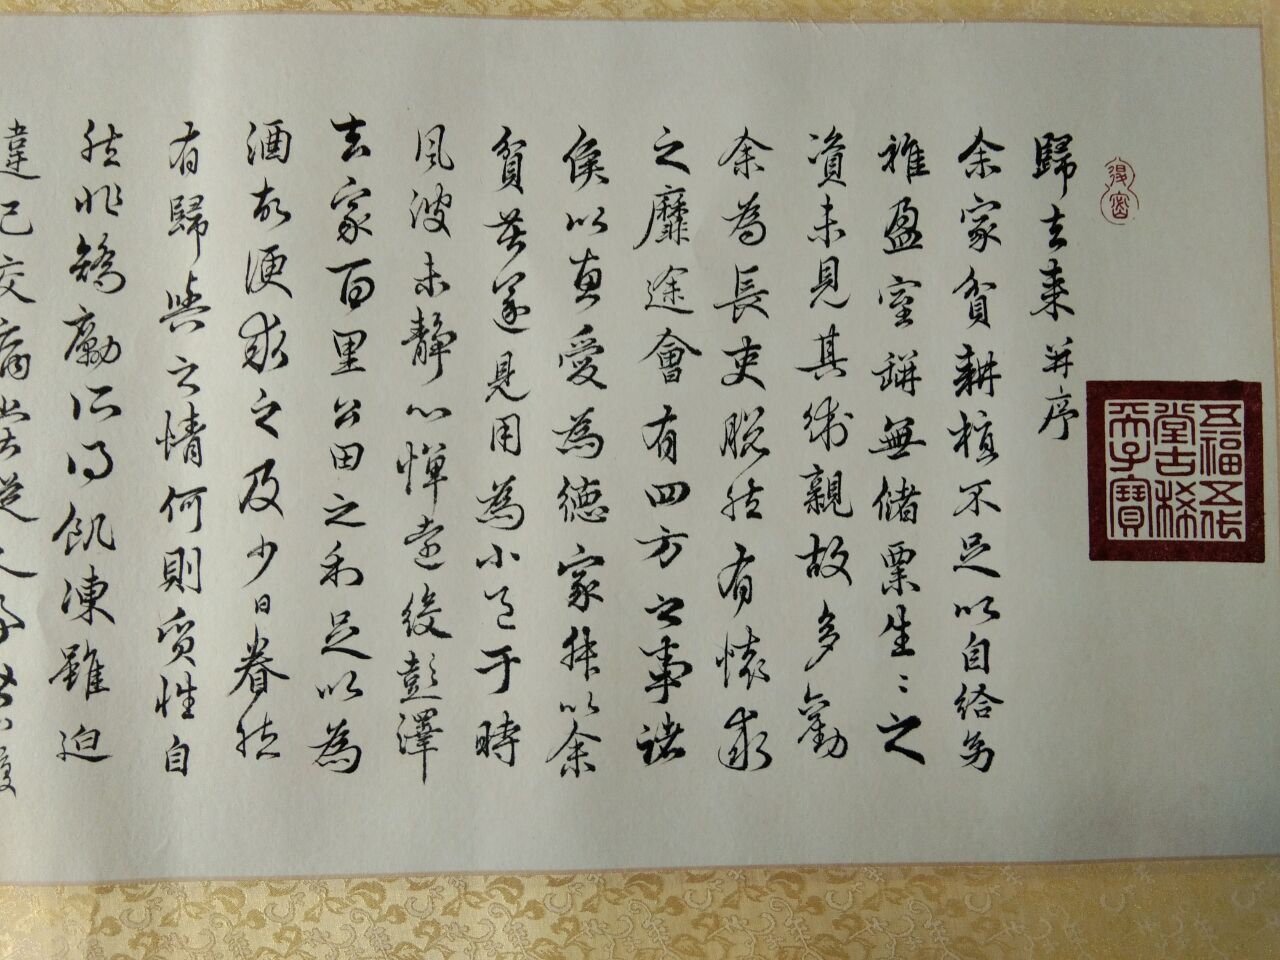 得密
五福五代
堂古稀
天子寶
歸去來并序
余家貧耕植不足以自給幼
稚盈室缾無儲粟生〻之
資未見其術親故多勸
余為長吏脫然有懷求
之靡途會有四方之事諸
侯以惠愛為德家叔以余
貧苦遂見用為小邑于時
風波未靜心憚遠役彭澤
去家百里公田之利足以為
酒故便求之及少日眷然
有歸與之情何則質性自
然非矯勵所得飢凍雖迫
違己交病嘗從人事皆口腹